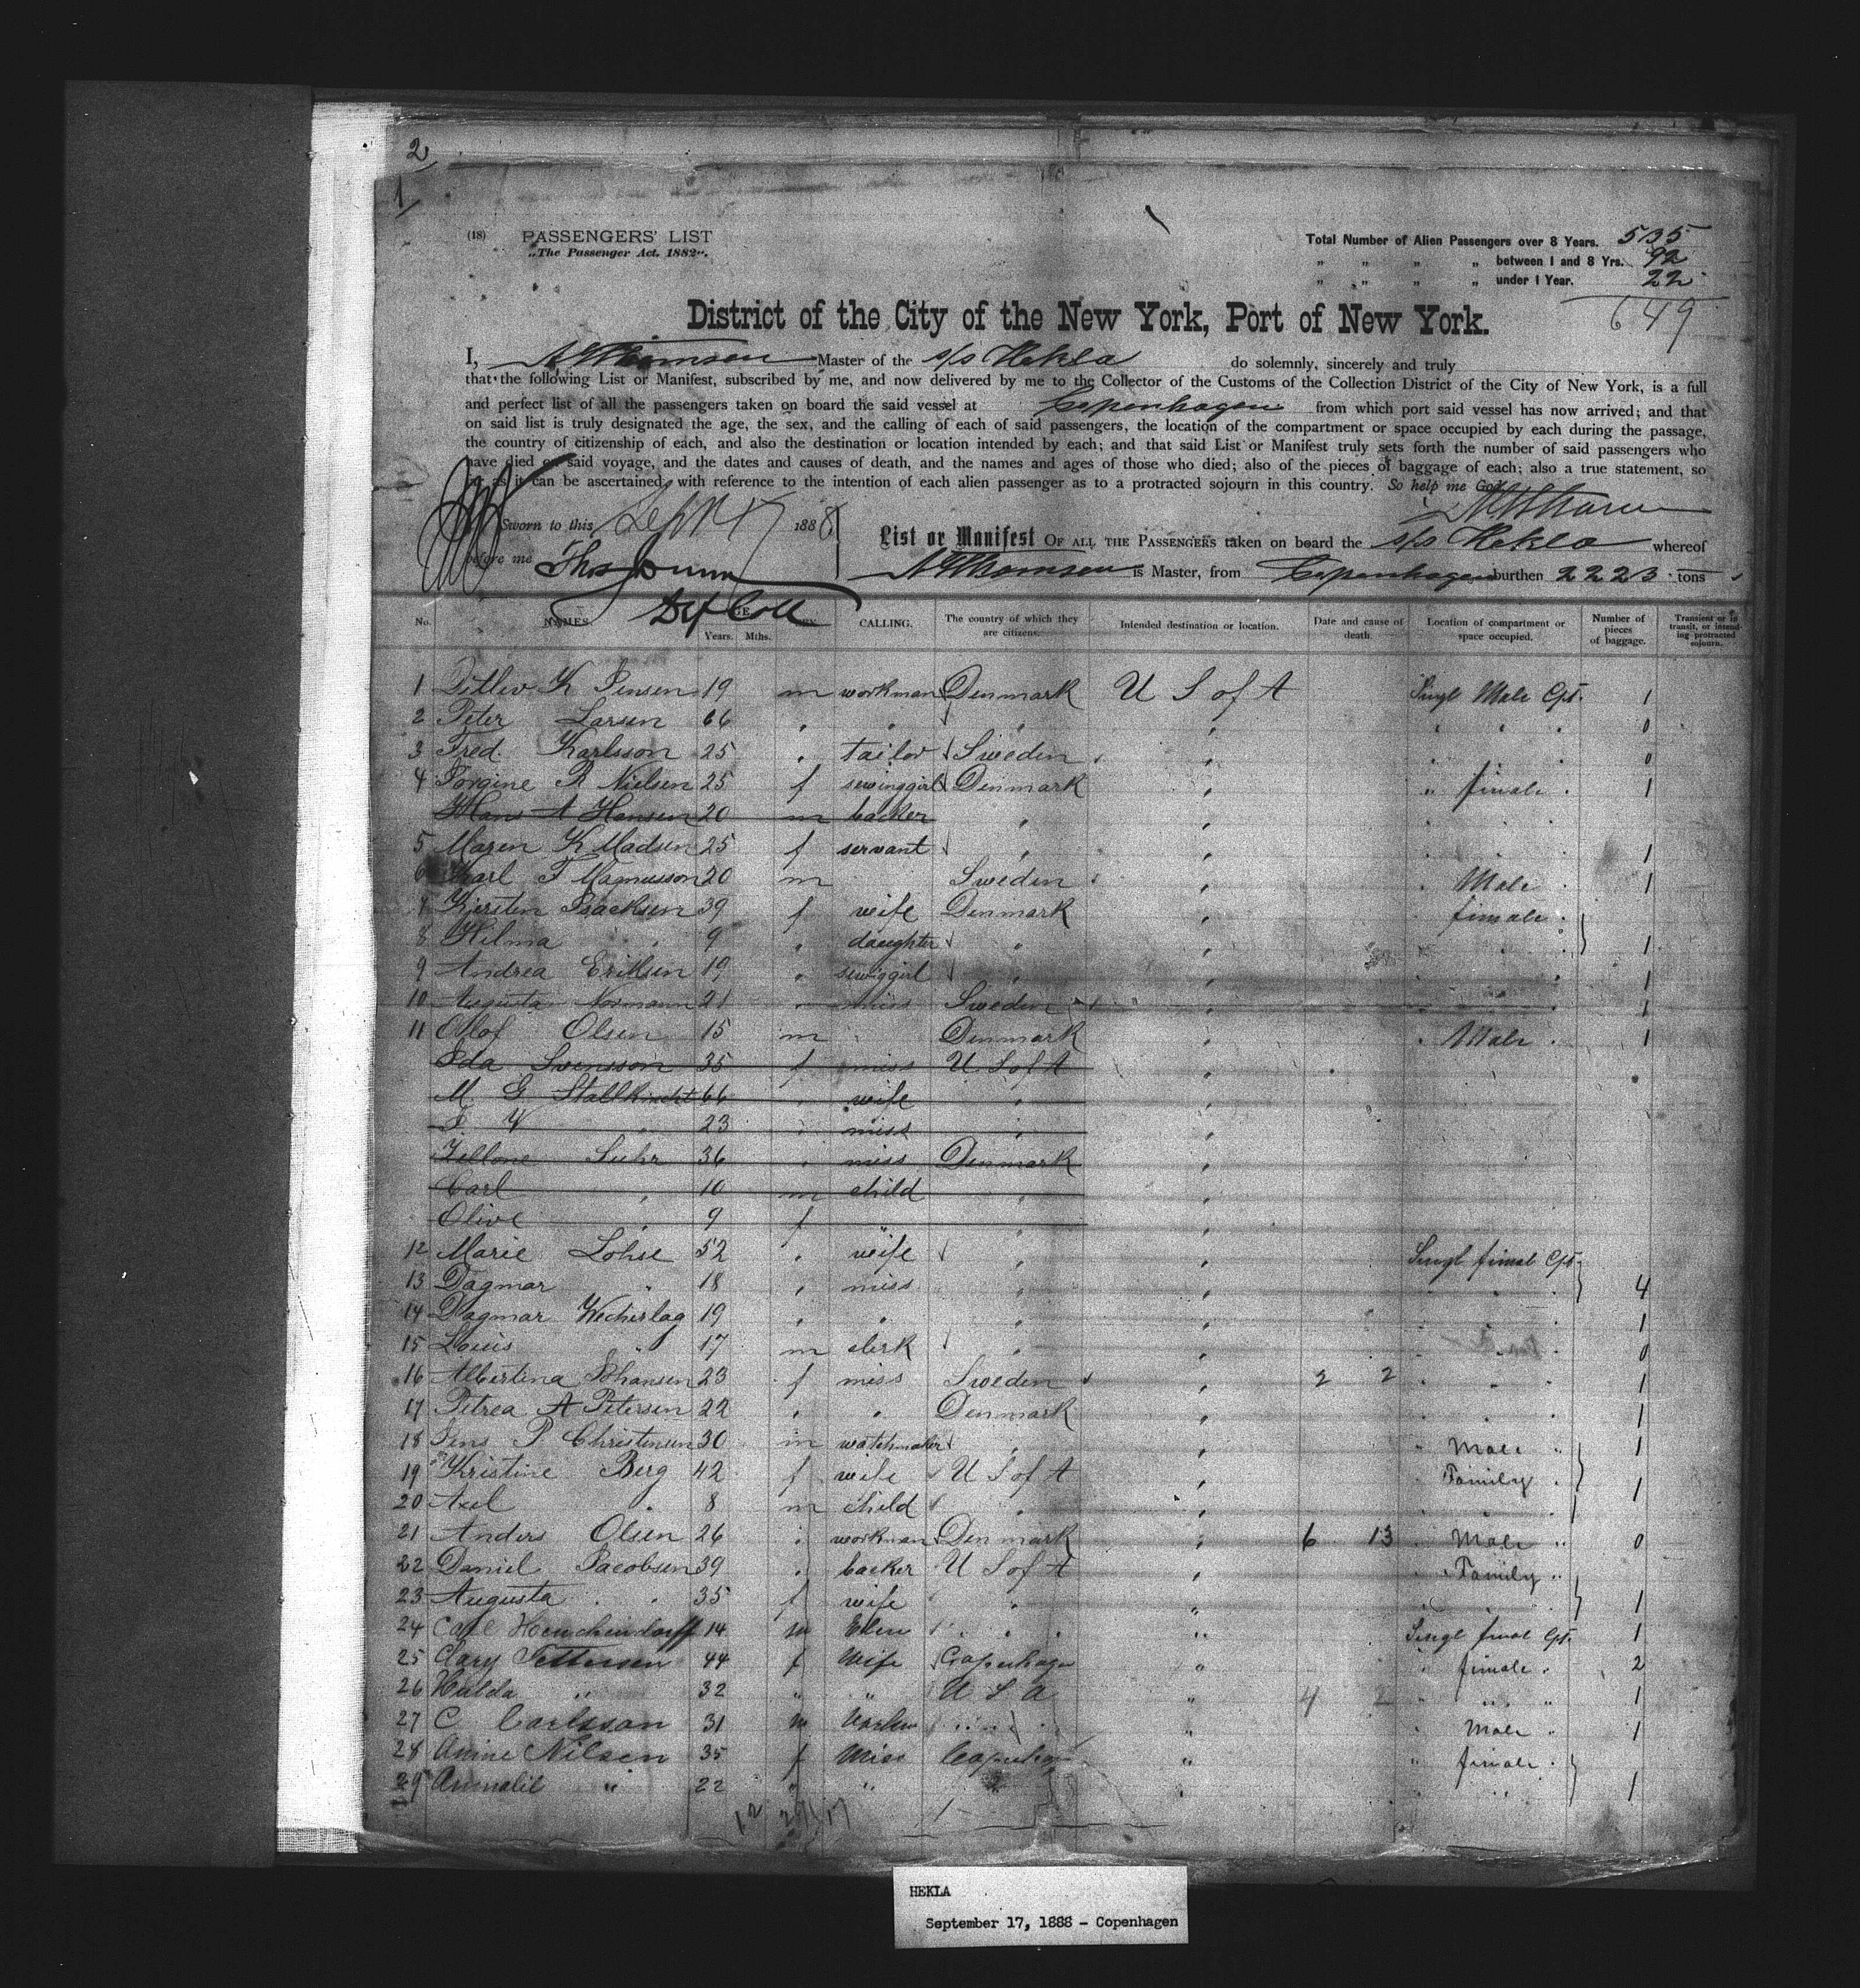 2
1
(18) PASSENGERS' LIST
„The Passenger Act. 1882“.
Total Number of Alien Passengers over 8 Years. 535
„ „ „ „ between 1 and 8 Yrs. 92
„ „ „ „ under 1 Year. 22
649
District of the City of the New York, Port of New York.
I, A G Thomsen Master of the s/s Hekla do solemnly, sincerely and truly
that the following List or Manifest, subscribed by me, and now delivered by me to the Collector of the Customs of the Collection District of the City of New York, is a full
and perfect list of all the passengers taken on board the said vessel at Copenhagen from which port said vessel has now arrived; and that
on said list is truly designated the age, the sex, and the calling of each of said passengers, the location of the compartment or space occupied by each during the passage,
the country of citizenship of each, and also the destination or location intended by each; and that said List or Manifest truly sets forth the number of said passengers who
have died on said voyage, and the dates and causes of death, and the names and ages of those who died; also of the pieces of baggage of each; also a true statement, so
as it can be ascertained, with reference to the intention of each alien passenger as to a protracted sojourn in this country. So help me God
Sworn to this Sept 17 1888
before me Thos Dunn
Dep Coll
List or Manifest OF ALL THE PASSENGERS taken on board the s/s Hekla whereof
A G Thomsen is Master, from Copenhagen burthen 2223 tons
No. NAMES. AGE Years. Mths. SEX. CALLING. The country of which they are citizens. Intended destination or location. Date and cause of death. Location of compartment or space occupied. Number of pieces of baggage. Transient or in transit, or intending protracted sojourn.
1 Ditlev K Jensen 19 m workman Denmark U S of A Singl Male Cpt. 1
2 Peter Larsen 66 " " " " " " " 0
3 Fred. Karlsson 25 " tailor Sweden " " " " 0
4 Jorgine P Nielsen 25 f sewinggirl Denmark " " female " 1
Hans A Hansen 20 m backer " "
5 Maren K Madsen 25 f servant " " " " " 1
6 Karl F Magnusson 20 m Sweden " " Male " 1
7 Kirsten Isacksen 39 f wife Denmark " female "
8 Hilma " 9 " daughter " " " " 1
9 Andrea Eriksen 19 " sewiggirl " " " 1
10 Augusta Normann 21 " miss Sweden " " " 1
11 Olof Olsen 15 m Denmark " " Male " 1
Ida Svensson 35 f miss U S of A "
M G Stallknecht 66 " wife " "
" 23 " miss " "
Suhr 36 " miss Denmark "
Carl " 10 m child " "
Olive " 9 f " "
12 Marie Lohse 52 " wife " " Singl femal Cpt.
13 Dagmar " 18 " miss " " " " 4
14 Dagmar Weckerlag 19 " " " " " 1
15 Louis " 17 m clerk " " " 0
16 Albertina Johansen 23 f miss Sweden " 2 2 " " " 1
17 Petrea A Petersen 22 " " Denmark " " " 1
18 Jens P Christensen 30 m watchmaker " " " Male " 1
19 Kristine Berg 42 f wife U S of A " " Family " 1
20 Axel " 8 m child " " " " "
21 Anders Olsen 26 " workman Denmark " 6 13 " Male " 0
22 Daniel Jacobsen 39 " backer U S of A " " Family "
23 Augusta " 35 f wife " " " " " 1
24 Carl 14 m " " Singl femal Cpt. 1
25 Clary Pettersen 44 f Wife Copenhagen " " female " 2
26 Hulda " 32 " " U S A " 4 2 " " " 1
27 C Carlsson 31 m " " " Male " 1
28 Anine Nilsen 35 f Miss Copenhagen " " female "
29 Annalie " 22 " " " " " 1
HEKLA
September 17, 1888 - Copenhagen